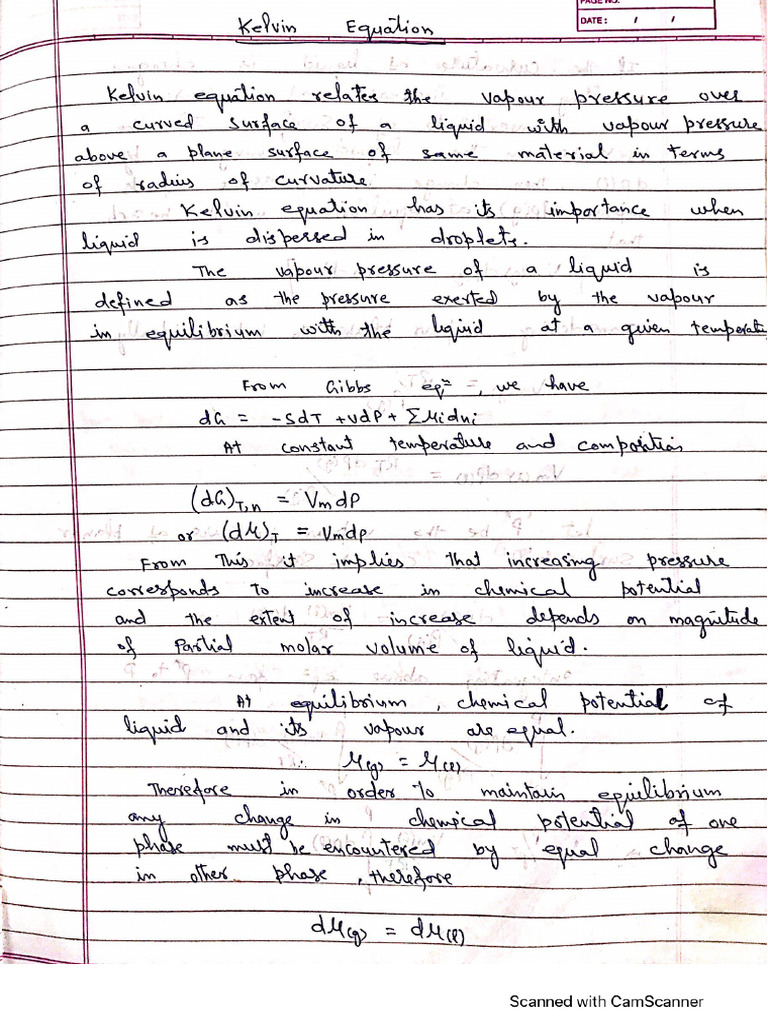 PAGE NO.
DATE: / /
Kelvin Equation
Kelvin equation relates the vapour pressure over
a curved surface of a liquid with vapour pressure
above a plane surface of same material in terms
of radius of curvature.
Kelvin equation has its importance when
liquid is dispersed in droplets.
The vapour pressure of a liquid is
defined as the pressure exerted by the vapour
in equilibrium with the liquid at a given temperati
From Gibbs eqⁿ =, we have
dG = -SdT + VdP + ΣMidni
At constant temperature and composition
(dG)T,n = Vmdp
or (dM)T = Vmdp
From This it implies that increasing pressure
corresponds to increase in chemical potential
and the extent of increase depends on magnitude
of Partial molar volume of liquid.
At equilibrium, chemical potential of
liquid and its vapour are equal.
∴ M(g) = M(l)
Therefore in order to maintain equilibrium
any change in chemical potential of one
phase must be encountered by equal change
in other phase, therefore
dM(g) = dM(l)
Scanned with CamScanner